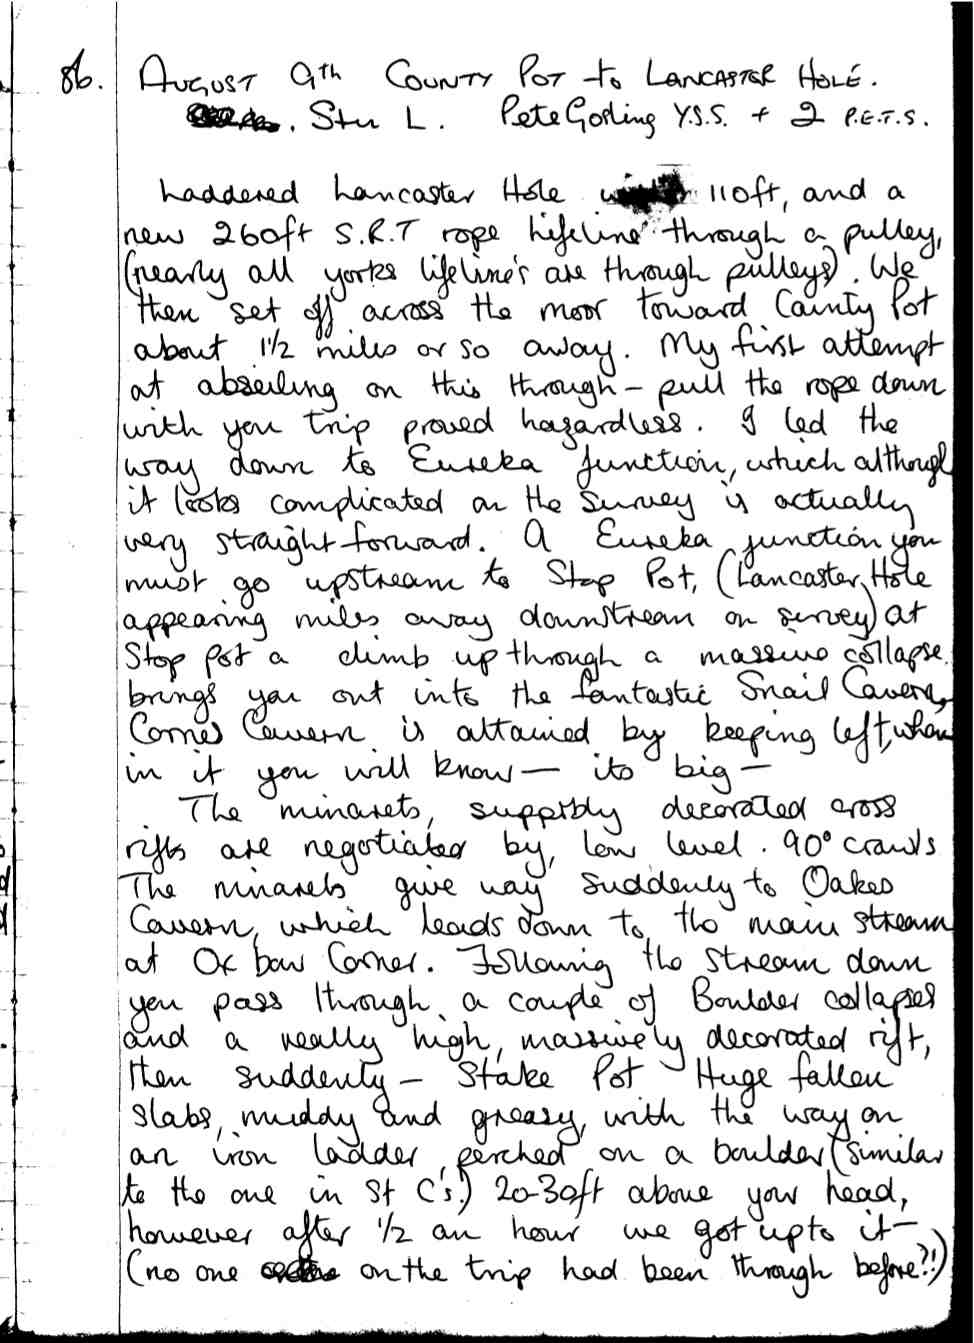 86. AUGUST 9th COUNTY POT to LANCASTER HOLE.
Stu L. Pete Gosling Y.S.S. + 2 P.E.T.S.
Laddered Lancaster Hole 110ft, and a
new 260ft S.R.T rope lifeline through a pulley,
(nearly all yorks lifeline's are through pulleys). We
then set off across the moor toward County Pot
about 1½ miles or so away. My first attempt
at abseiling on this through - pull the rope down
with you trip proved hazardless. I led the
way down to Eureka junction, which although
it looks complicated on the survey is actually
very straight forward. A Eureka junction you
must go upstream to Stop Pot, (Lancaster Hole
appearing miles away downstream on survey) at
Stop Pot a climb up through a massive collapse
brings you out into the fantastic Snail Cavern,
Cornes Cavern is attained by keeping left, when
in it you will know - its big -
The minarets, suppibly decorated cross
rifts are negotiated by, low level. 90° crawls
The minarets give way suddenly to Oakes
Cavern, which leads down to the main stream
at Ox bow Corner. Following the stream down
you pass through a couple of Boulder collapses
and a really high, massively decorated rift,
then suddenly - Stake Pot Huge fallen
slabs, muddy and greasy, with the way on
an iron ladder, perched on a boulder (similar
to the one in St C's.) 20-30ft above your head,
however after ½ an hour we got up to it -
(no one on the trip had been through before?!)